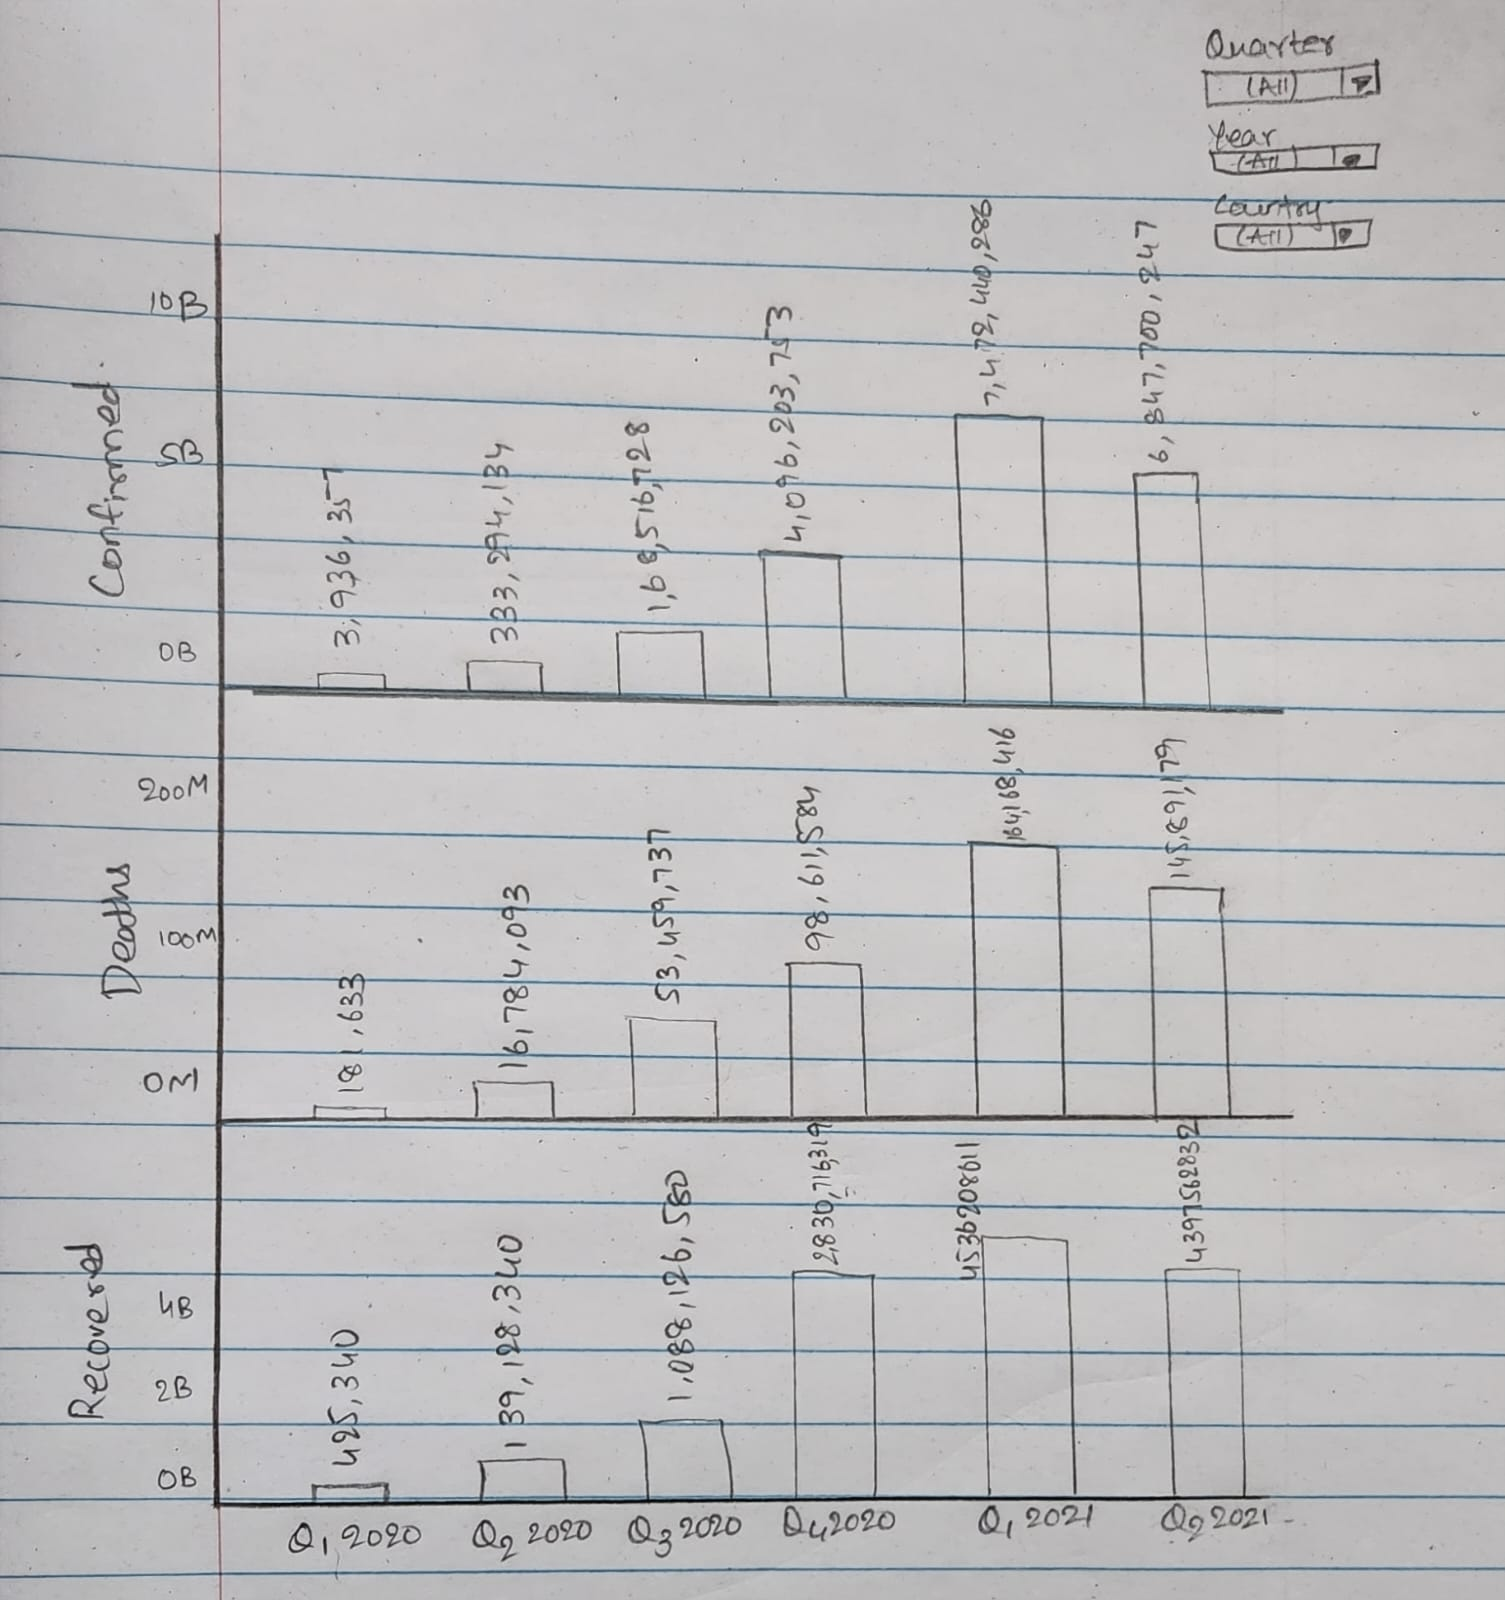 Quarter
(All)
Year
(All)
Country
(All)
Confirmed
10B
5B
0B
3,936,357
333,294,134
4,096,203,753
7,472,440,286
6,847,700,247
Deaths
200M
100M
0M
181,633
16,784,093
53,459,737
98,611,584
164,168,416
145,891,179
Recovered
4B
2B
0B
425,340
139,128,340
1,088,126,580
2,830,716,319
4536208611
4397562832
Q1 2020
Q2 2020
Q3 2020
Q4 2020
Q1 2021
Q2 2021